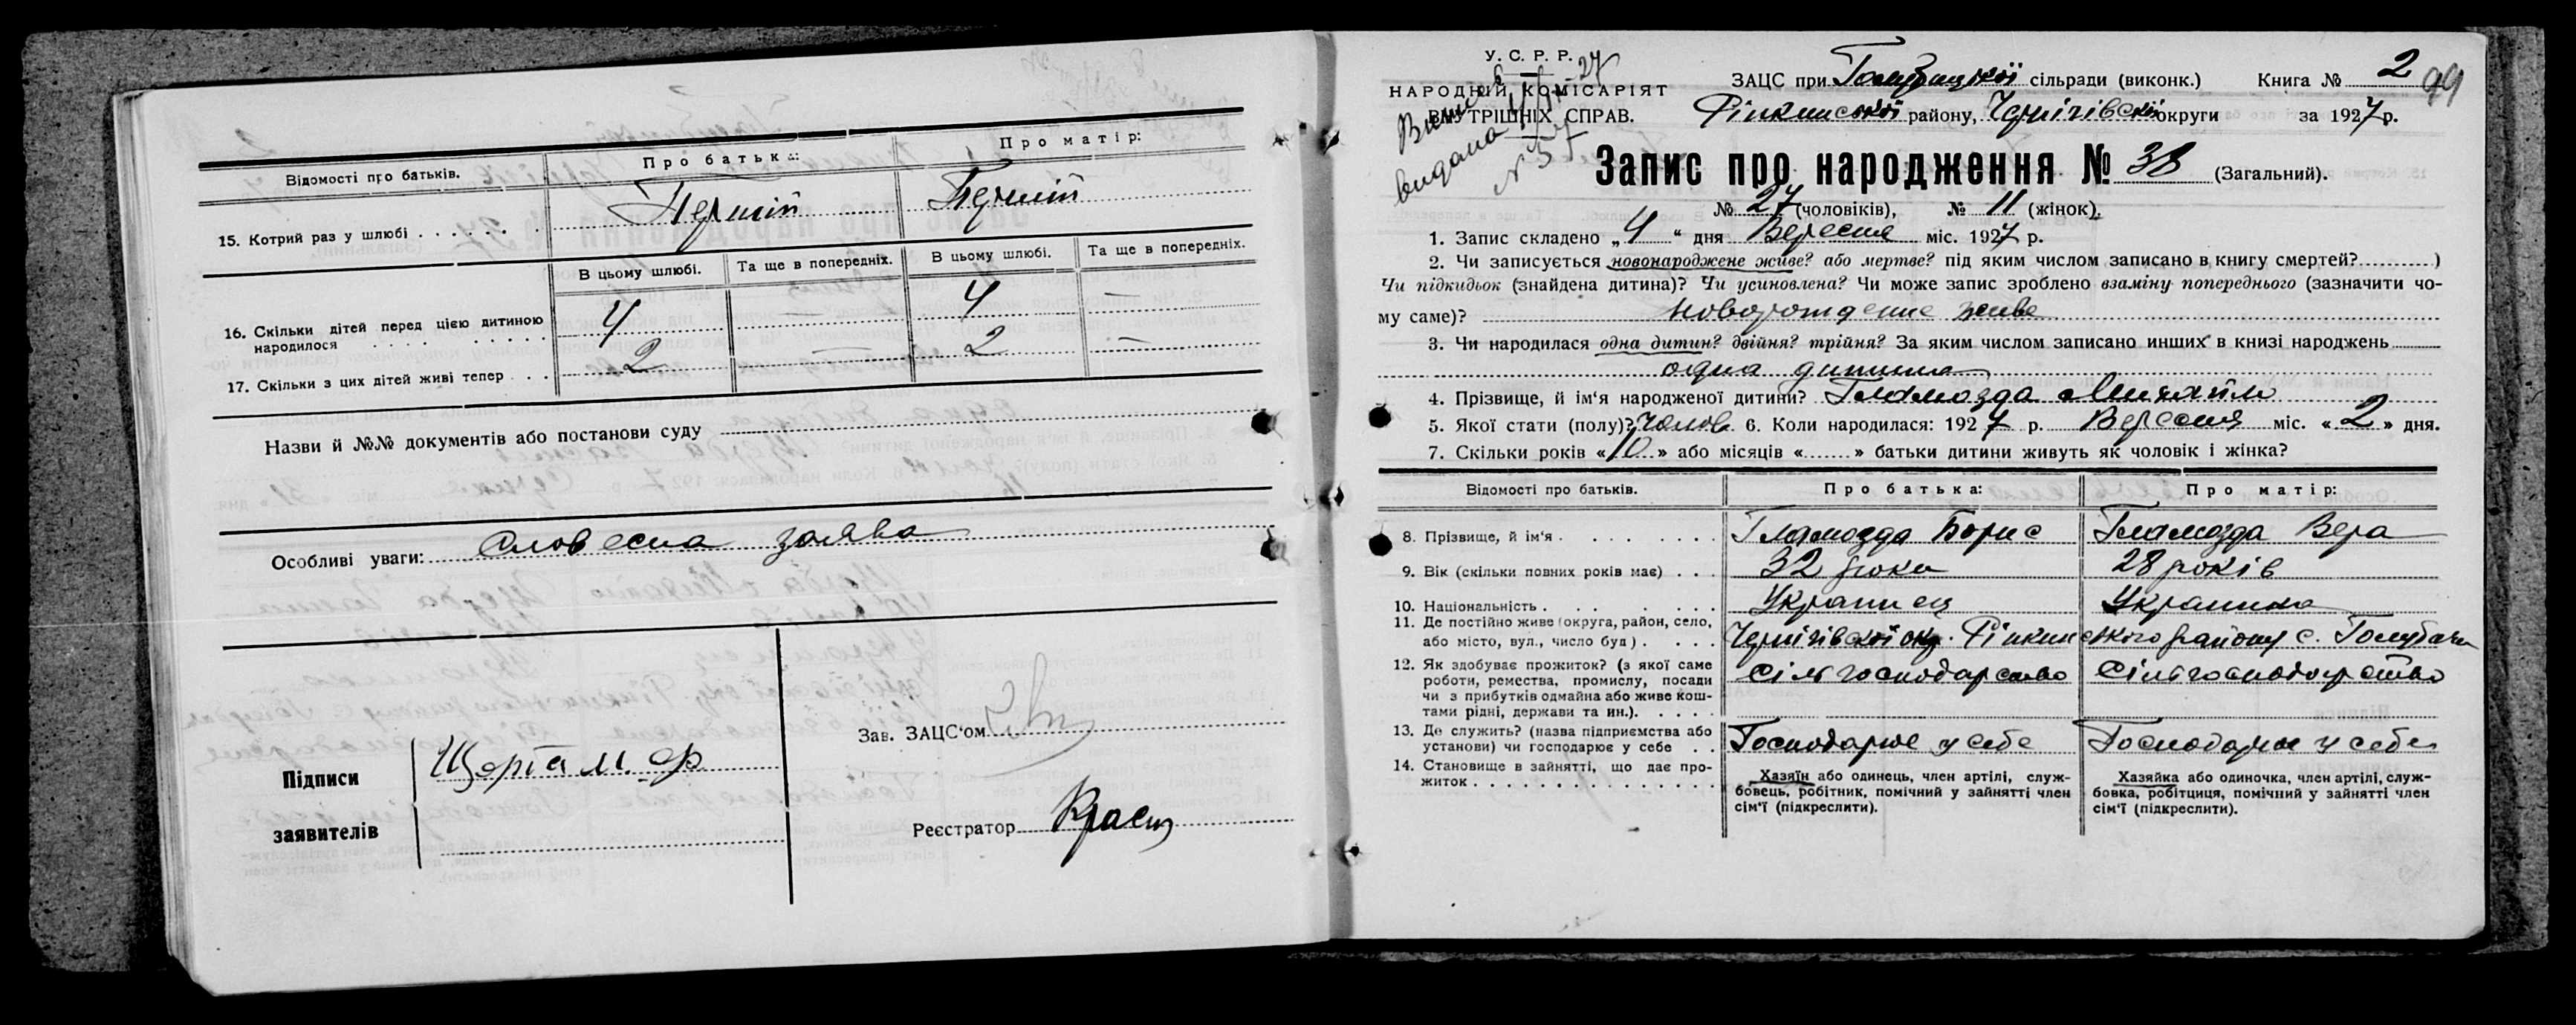 Відомості про батьків.
Про батька:
Про матір:
15. Котрий раз у шлюбі
Перший
Перший
В цьому шлюбі.
Та ще в попередніх.
В цьому шлюбі.
Та ще в попередніх.
16. Скільки дітей перед цією дитиною
народилося
4
—
4
—
17. Скільки з цих дітей живі тепер
2
—
2
—
Назви й №№ документів або постанови суду
Особливі уваги: Словесна заява
Підписи
заявителів
Щерба М. Ф
Зав. ЗАЦС‘ом
Реєстратор
У. С. Р. Р.
НАРОДНІЙ КОМІСАРІЯТ
ВНУТРІШНІХ СПРАВ.
видана
N 57
ЗАЦС при Голубицької сільради (виконк.) Книга № 2
99
Ріпкинської району, Чернігівської округи за 1927 р.
Запис про народження № 38 (Загальний).
№ 27 (чоловіків), № 11 (жінок).
1. Запис складено „4“ дня Вересня міс. 1927 р.
2. Чи записується новонароджене живе? або мертве? під яким числом записано в книгу смертей? )
Чи підкидьок (знайдена дитина)? Чи усиновлена? Чи може запис зроблено взаміну попереднього (зазначити чо-
му саме)? новорождение живе
3. Чи народилася одна дитин? двійня? трійня? За яким числом записано инших в книзі народжень
одна дитина
4. Прізвище, й ім‘я народженої дитини? Гламозда Михайло
5. Якої стати (полу)? Чолов. 6. Коли народилася: 1927 р. Вересня міс. «2» дня.
7. Скільки років «10» або місяців « » батьки дитини живуть як чоловік і жінка?
Відомості про батьків.
Про батька:
Про матір:
8. Прізвище, й ім‘я
Гламозда Борис
Гламозда Вера
9. Вік (скільки повних років має)
32 роки
28 років
10. Національність
Украинец
Украинка
11. Де постійно живе (округа, район, село,
або місто, вул., число буд)
Чернігівської окр. Ріпкинського району с. Голубичи
12. Як здобуває прожиток? (з якої саме
роботи, ремества, промислу, посади
чи з прибутків одмайна або живе кош-
тами рідні, держави та ин.).
Сільгосподарство
Сільгосподарство
13. Де служить? (назва підприємства або
установи) чи господарює у себе
Господарює у себе
Господарює у себе
14. Становище в зайнятті, що дає про-
житок
Хазяїн або одинець, член артілі, служ-
бовець, робітник, помічний у зайнятті член
сім‘ї (підкреслити).
Хазяйка або одиночка, член артілі, служ-
бовка, робітниця, помічний у зайнятті член
сім‘ї (підкреслити).